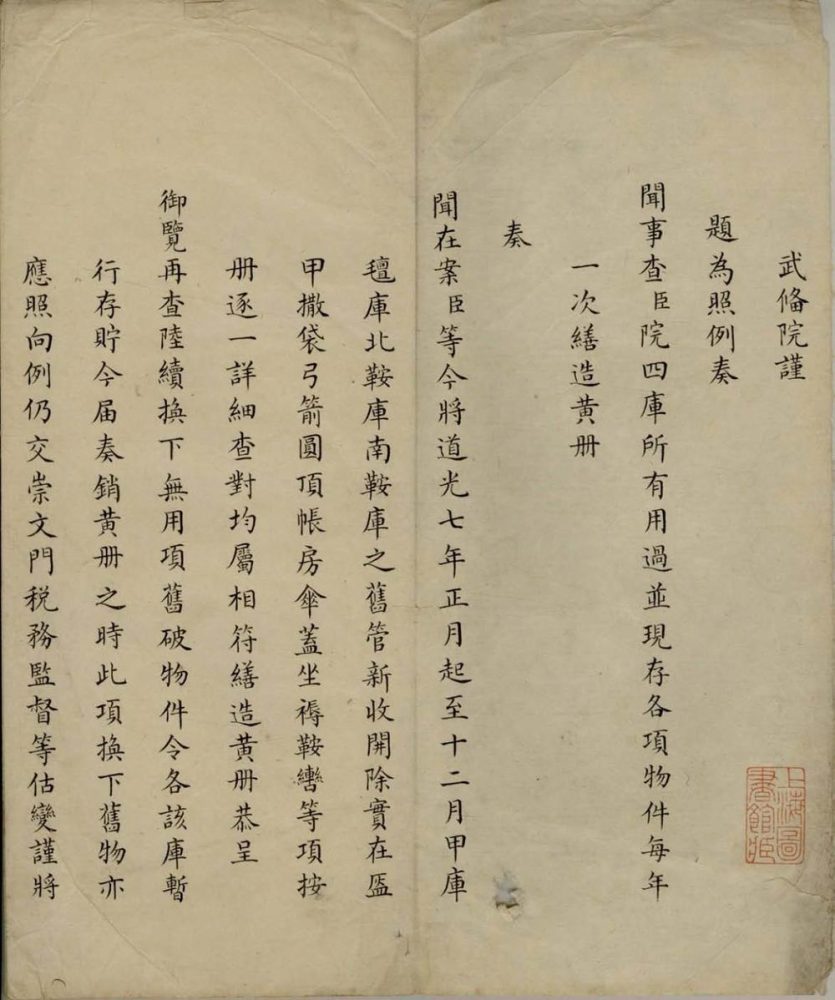 武俻院謹
題為照例奏
聞事查臣院四庫所有用過並現存各項物件每年
一次繕造黄册
奏
聞在案臣等今將道光七年正月起至十二月甲庫
氊庫北鞍庫南鞍庫之舊管新收開除實在盔
甲撒袋弓箭圓頂帳房傘蓋坐褥鞍轡等項按
册逐一詳細查對均屬相符繕造黄册恭呈
御覽再查陸續換下無用項舊破物件令各該庫暫
行存貯今届奏銷黄册之時此項換下舊物亦
應照向例仍交崇文門税務監督等估變謹將
上海圖
書館藏